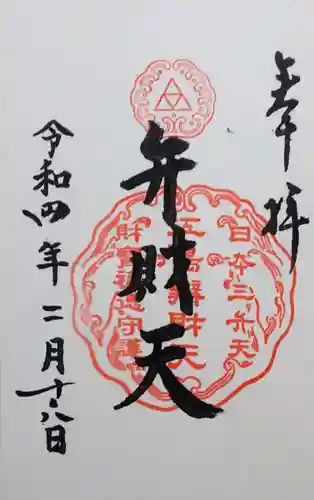 奉拝
日本三弁天
弁財天
江島辨財天
財寶福徳守護
令和四年二月十八日